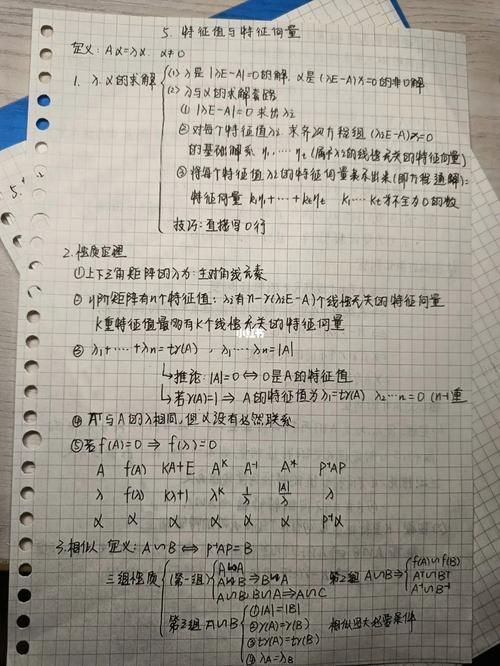 5. 特征值与特征向量
定义: Aα=λα. α≠0
1. λ.α的求解
(1) λ是|λE-A|=0的解, α是(λE-A)x=0的非0解
(2) λ与α的求解套路
① |λE-A|=0 求出λi
② 对每个特征值λi 求齐次方程组 (λiE-A)x=0
的基础解系 η1,……ηt (属于λi的线性无关的特征向量)
③ 将每个特征值λi的特征向量表示出来(即方程通解):
特征向量 k1η1+…+ktηt k1…kt为不全为0的数
技巧: 直接写0行
5.
2. 性质定理
①上下三角矩阵的λ为: 主对角线元素
② n阶矩阵有n个特征值: λi有n-r(λiE-A)个线性无关的特征向量
K重特征值最多有K个线性无关的特征向量
小红书
③ λ1+…+λn=tr(A), λ1…λn=|A|
↳推论: |A|=0 ⇔ 0是A的特征值
↳若r(A)=1 ⇒ A的特征值为λ1=tr(A) λ2…=0 (n-1重
④ Aᵀ与A的λ相同, 但α没有必然联系
⑤若f(A)=0 ⇒ f(λ)=0
A f(A) kA+E Aᴷ A⁻¹ A* P⁻¹AP
λ f(λ) kλ+1 λᴷ 1/λ |A|/λ λ
α α α α α α P⁻¹α
3. 相似 定义: A∽B ⇔ P⁻¹AP=B
三组性质
第一组
A∽A
A∽B ⇒ B∽A
A∽B, B∽A ⇒ A∽C
第2组 A∽B ⇒
f(A)∽f(B)
Aᵀ∽Bᵀ
A⁻¹∽B⁻¹
第3组 A∽B
① |A|=|B|
② r(A)=r(B)
③ tr(A)=tr(B)
④ λA=λB
相似四大必要条件